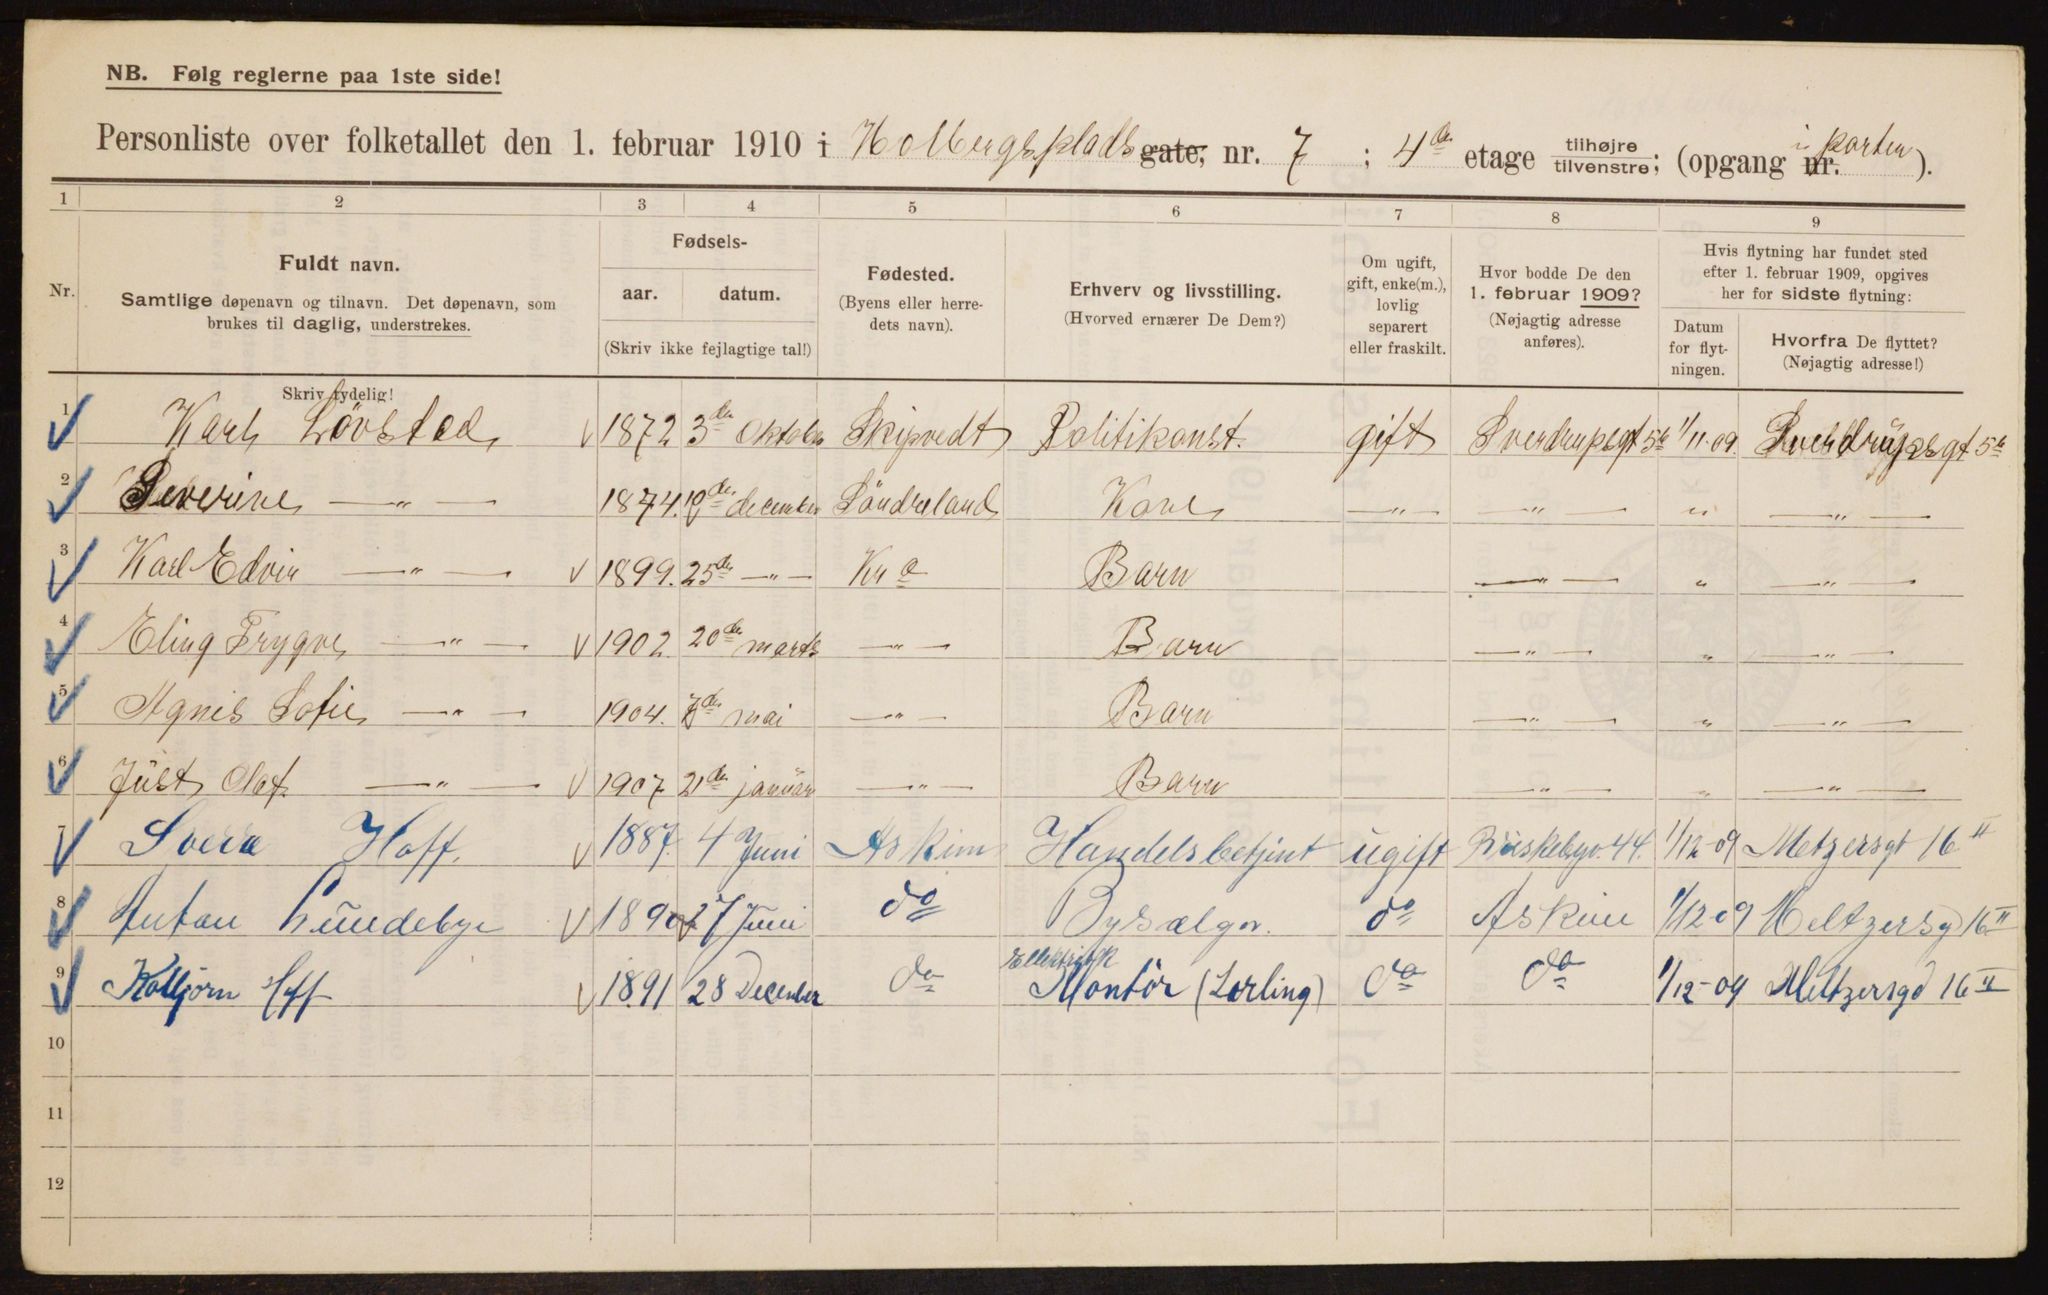 NB. Følg reglerne paa 1ste side!
Personliste over folketallet den 1. februar 1910 i Holbergsplads gate, nr. 7 ; 4de etage tilhøjre tilvenstre; (opgang nr. i porten).
1 2 3 4 5 6 7 8 9
Nr.
Fuldt navn.
Samtlige døpenavn og tilnavn. Det døpenavn, som
brukes til daglig, understrekes.
Fødsels-
aar. datum.
(Skriv ikke fejlagtige tal!)
Fødested.
(Byens eller herre-
dets navn).
Erhverv og livsstilling.
(Hvorved ernærer De Dem?)
Om ugift,
gift, enke(m.),
lovlig
separert
eller fraskilt.
Hvor bodde De den
1. februar 1909?
(Nøjagtig adresse
anføres).
Hvis flytning har fundet sted
efter 1. februar 1909, opgives
her for sidste flytning:
Datum
for flyt-
ningen.
Hvorfra De flyttet?
(Nøjagtig adresse!)
Skriv tydelig!
1 Karl Lövstad 1872 3de Oktober Skipvedt Politikonst. gift Sverdrupsgt 5b 1/11-09. Sverdrüpsgt 5b
2 Severine —"— 1874. 10de december Söndreland Kone —"— —"— " —"—
3 Karl Edvin —"— 1899. 25de —"— Kra Barn —"— " —"—
4 Eling Trygve —"— 1902. 20de marts —"— Barn —"— " —"—
5 Agnes Sofie —"— 1904. de mai —"— Barn —"— " —"—
6 Jüst Olaf —"— 1907 21de januar —"— Barn —"— " —"—
7 Sverre Hoff. 1887. 4 Juni Askim Handelsbetjent ugift Briskebyv. 44. 1/12-09 Metzersgt 16 II
8 Anton Lundebye 1890 27 Juni do do Askim 1/12-09 Meltzersg 16 II
9 Kolbjørn Hoff 1891 28 December do Ellektrisk Montör (Lærling) do do 1/12-09 Meltzersgd 16 II
10
11
12